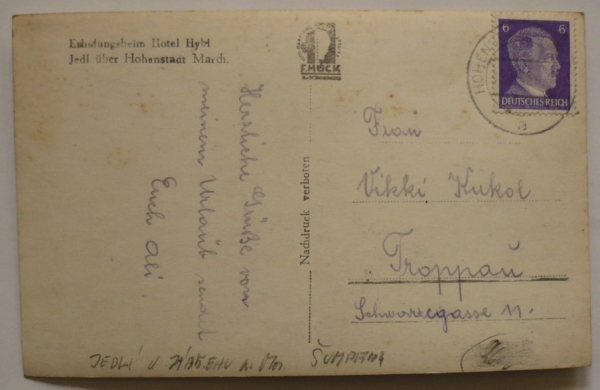 Erholungsheim Hotel Hybl
Jedl über Hohenstadt March.
F. MUCK
Herzliche Grüße von
meinem Urlaub sendet
Euch Ali
Nachdruck verboten
6 6
DEUTSCHES REICH
HOHEN
a
Frau
Vikki Kukol
Troppau
Schwarzegasse 11.
JEDLÍ U ZÁBŘEHU n. Mor. ŠUMPERKA